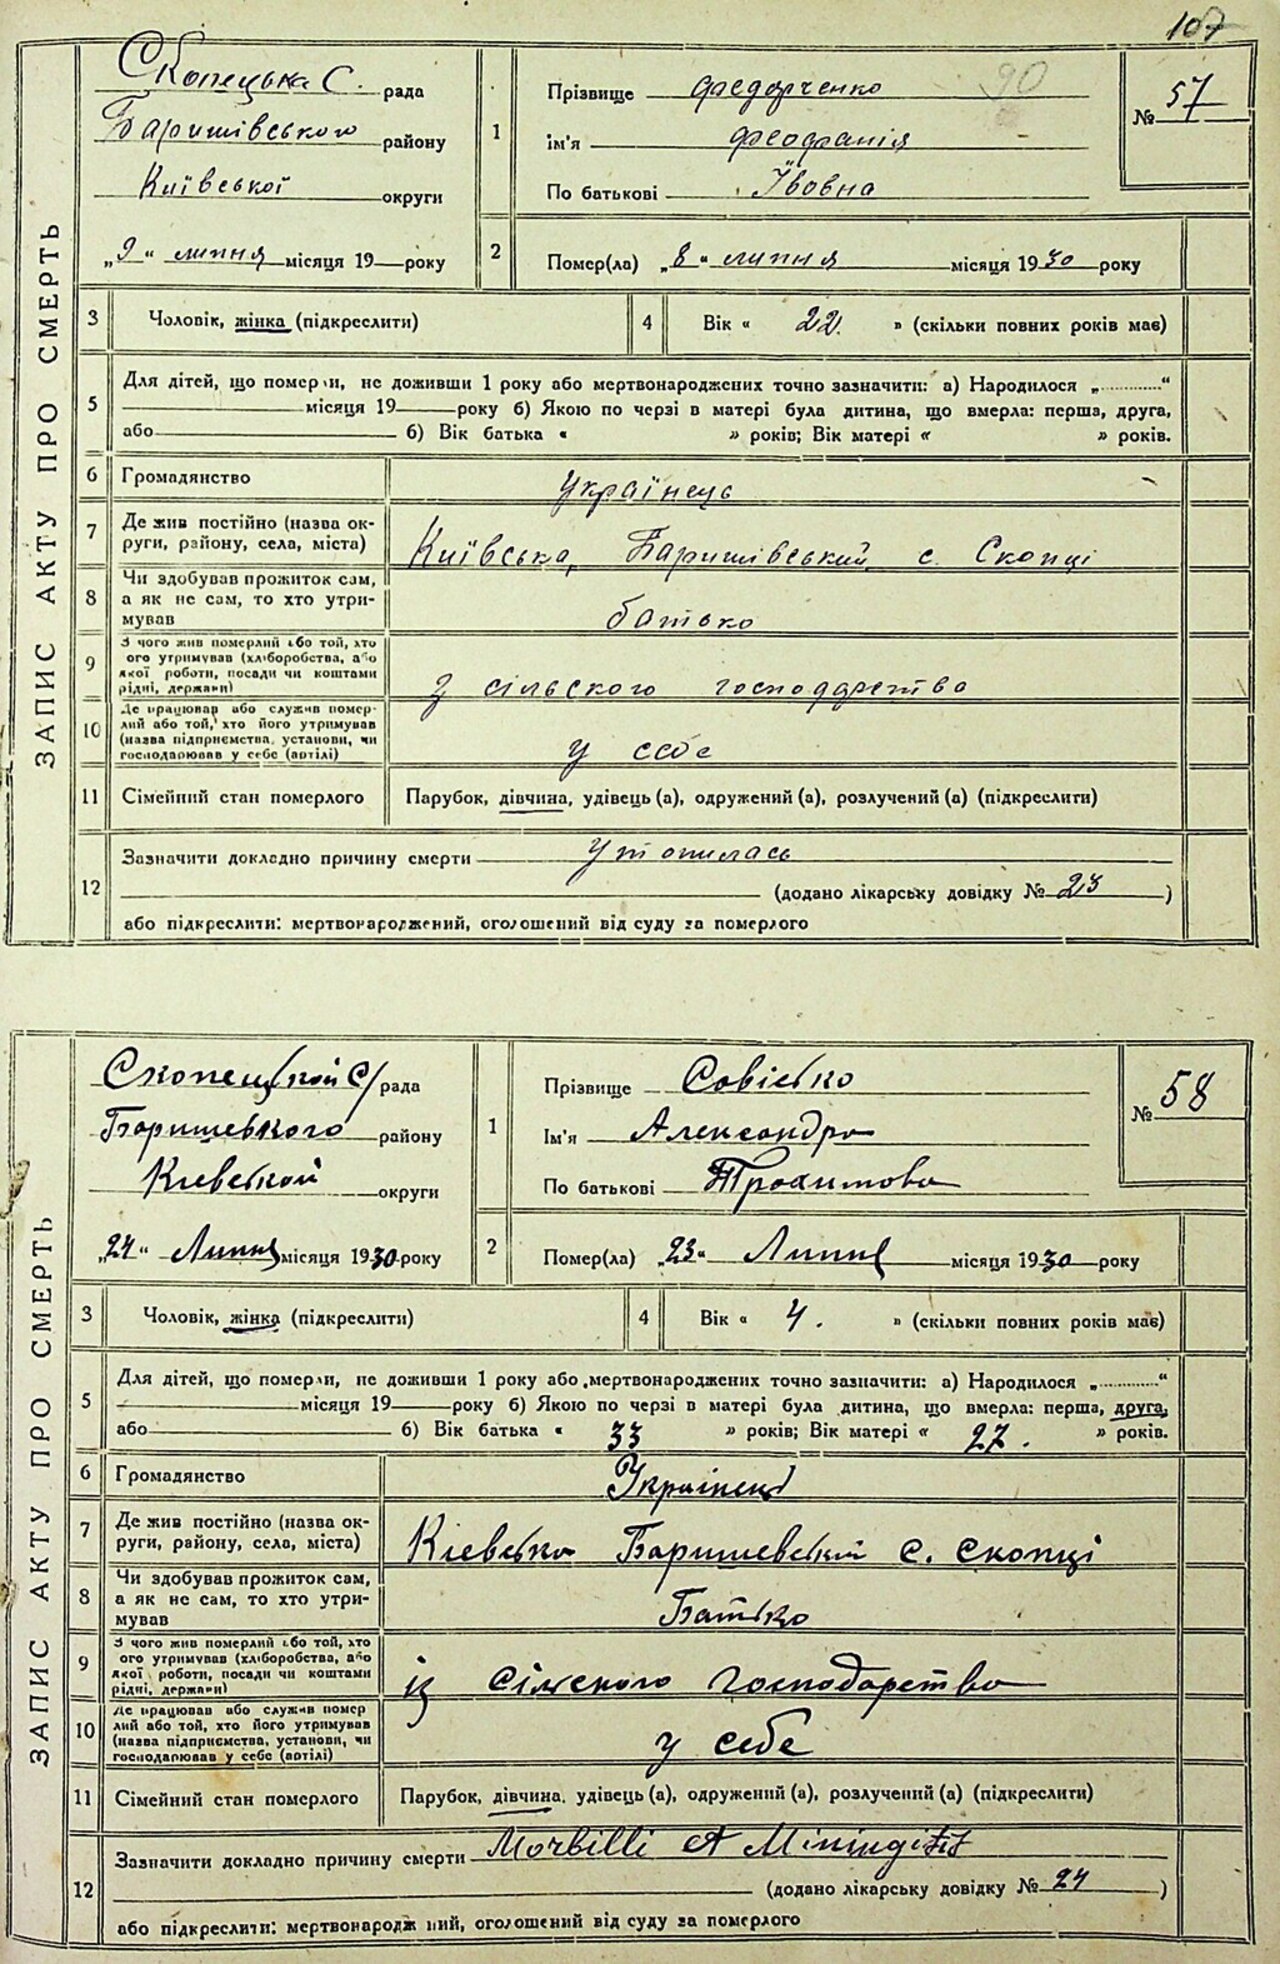 107
ЗАПИС АКТУ ПРО СМЕРТЬ
Скопецька С. рада
Баришівського району
Київської округи
„9“ липня місяця 19 року
1
Прізвище Федорченко
90
ім'я Феофанія
По батькові Ївовна
№ 57
2 Помер(ла) „8“ липня місяця 1930 року
3 Чоловік, жінка (підкреслити)
4 Вік « 22. » (скільки повних років має)
5 Для дітей, що померли, не доживши 1 року або мертвонароджених точно зазначити: а) Народилося „............“
місяця 19 року б) Якою по черзі в матері була дитина, що вмерла: перша, друга,
або б) Вік батька « » років; Вік матері « » років.
6 Громадянство українець
7 Де жив постійно (назва ок-
руги, району, села, міста) Київська, Баришівський с. Скопці
8 Чи здобував прожиток сам,
а як не сам, то хто утри-
мував батько
9 З чого жив померлий або той, хто
ого утримував (хліборобства, або
якої роботи, посади чи коштами
рідні, держави) з сільского господарства
10 Де працював або служив помер-
лий або той, хто його утримував
(назва підприємства, установи, чи
господарював у себе (артілі) у себе
11 Сімейний стан померлого Парубок, дівчина, удівець (а), одружений (а), розлучений (а) (підкреслити)
12 Зазначити докладно причину смерти утопилась
(додано лікарську довідку № 23 )
або підкреслити: мертвонароджений, оголошений від суду за померлого
ЗАПИС АКТУ ПРО СМЕРТЬ
Скопецької С/рада
Баришевкого району
Кіевської округи
„24“ Липня місяця 1930 року
1
Прізвище Совісько
Ім'я Александра
По батькові Трохимова
№ 58
2 Помер(ла) „23“ Липня місяця 1930 року
3 Чоловік, жінка (підкреслити)
4 Вік « 4. » (скільки повних років має)
5 Для дітей, що померли, не доживши 1 року або мертвонароджених точно зазначити: а) Народилося „............“
місяця 19 року б) Якою по черзі в матері була дитина, що вмерла: перша, друга,
або б) Вік батька « 33 » років; Вік матері « 27. » років.
6 Громадянство Українець
7 Де жив постійно (назва ок-
руги, району, села, міста) Кіевська Баришевський с. Скопці
8 Чи здобував прожиток сам,
а як не сам, то хто утри-
мував Батько
9 З чого жив померлий або той, хто
ого утримував (хліборобства, або
якої роботи, посади чи коштами
рідні, держави) із сільского господарства
10 Де працював або служив помер
лий або той, хто його утримував
(назва підприємства, установи, чи
господарював у себе (артілі) у себе
11 Сімейний стан померлого Парубок, дівчина, удівець (а), одружений (а), розлучений (а) (підкреслити)
12 Зазначити докладно причину смерти Morbilli et
(додано лікарську довідку № 24 )
або підкреслити: мертвонароджений, оголошений від суду за померлого